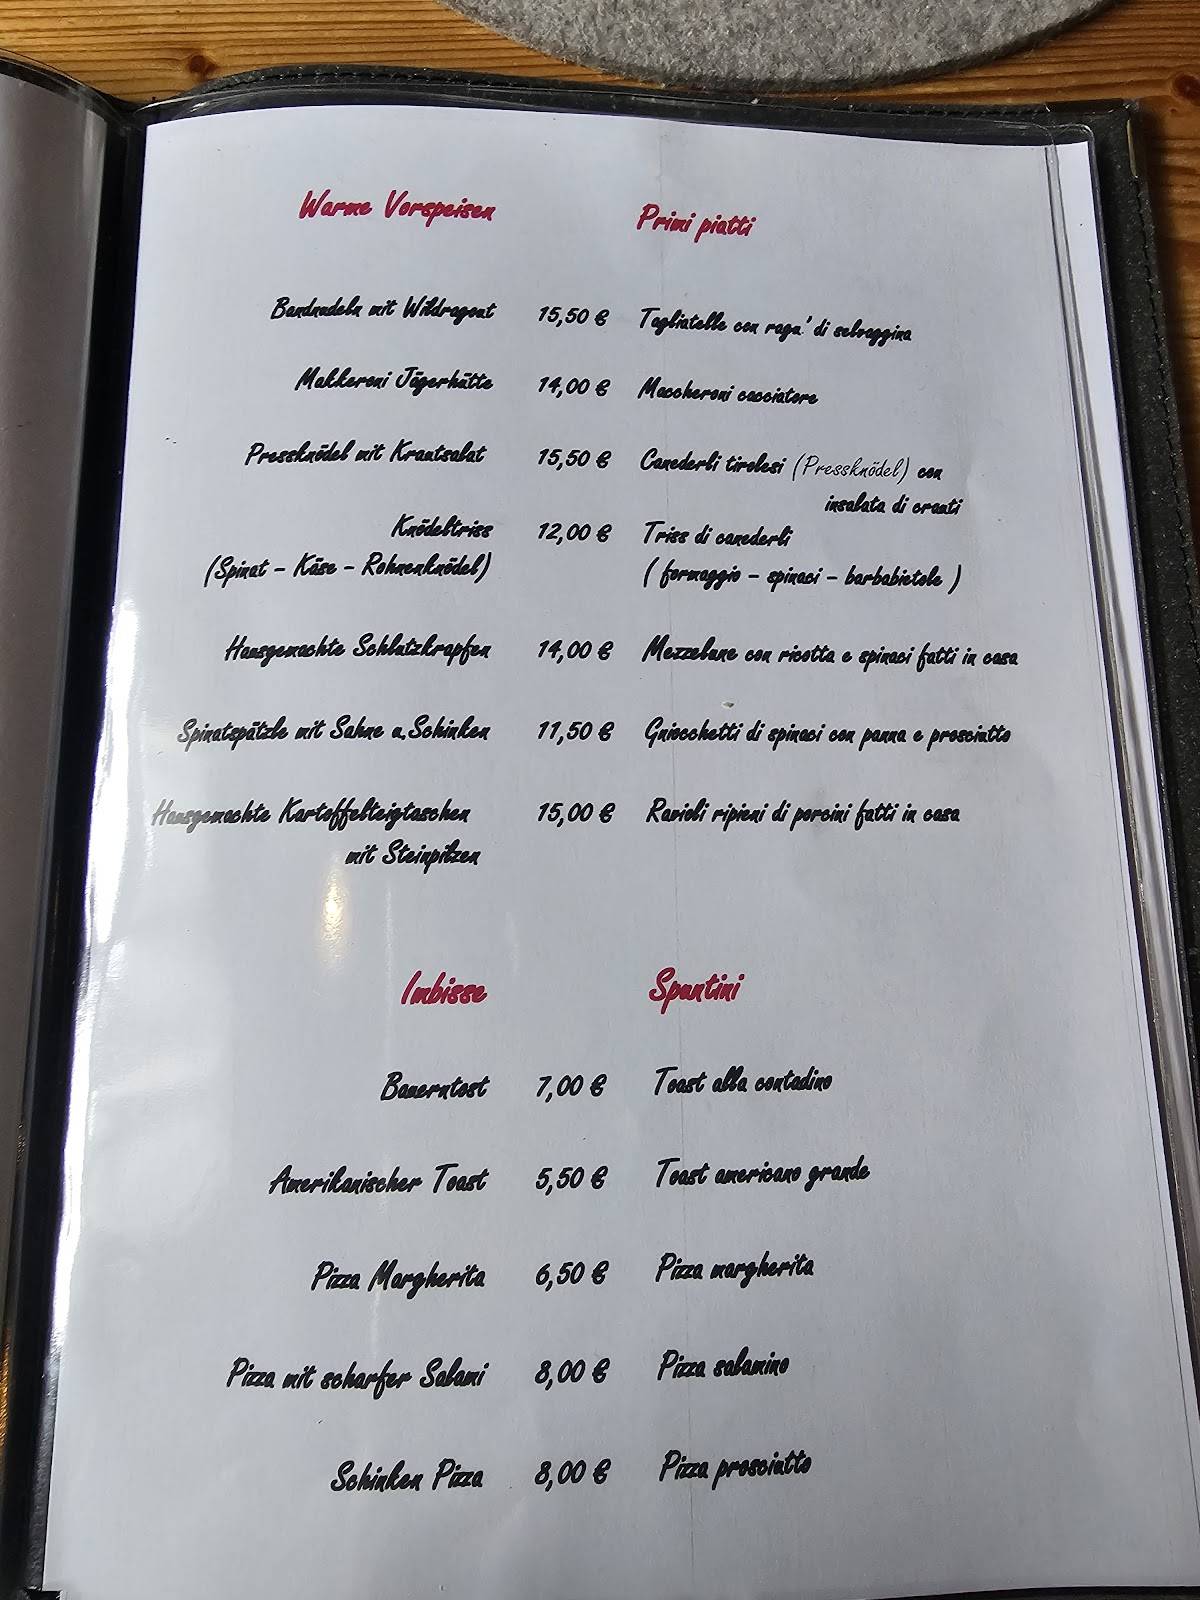 Warme Vorspeisen Primi piatti
Bandnudeln mit Wildragout 15,50 € Tagliatelle con ragu' di selvaggina
Makkeroni Jägerhütte 14,00 € Maccheroni cacciatore
Pressknödel mit Krautsalat 15,50 € Canederli tirolesi (Pressknödel) con
insalata di crauti
Knödeltriss 12,00 € Triss di canederli
(Spinat – Käse – Rohnenknödel) ( formaggio – spinaci – barbabietole )
Hausgemachte Schlutzkrapfen 14,00 € Mezzelune con ricotta e spinaci fatti in casa
Spinatspätzle mit Sahne u.Schinken 11,50 € Gniocchetti di spinaci con panna e prosciutto
Hausgemachte Kartoffelteigtaschen 15,00 € Ravioli ripieni di porcini fatti in casa
mit Steinpilzen
Imbisse Spuntini
Bauerntost 7,00 € Toast alla contadino
Amerikanischer Toast 5,50 € Toast americano grande
Pizza Margherita 6,50 € Pizza margherita
Pizza mit scharfer Salami 8,00 € Pizza salamino
Schinken Pizza 8,00 € Pizza prosciutto